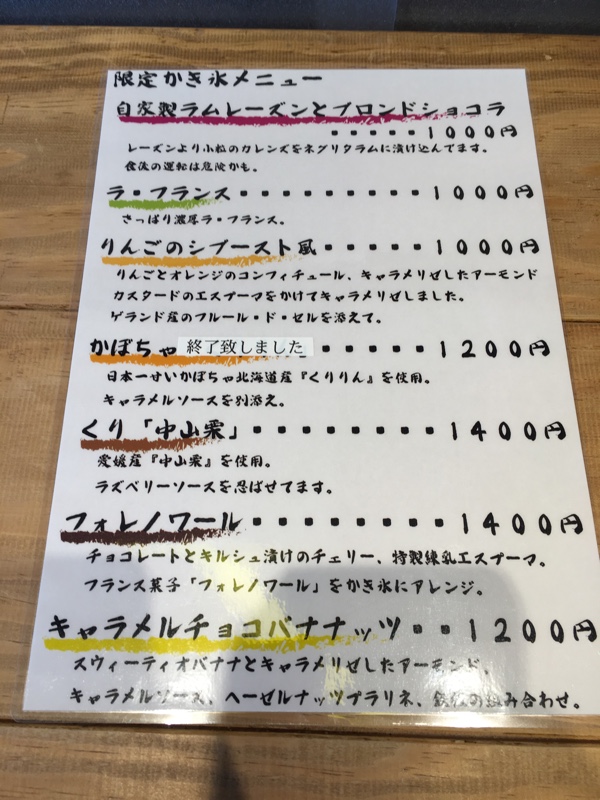 限定かき氷メニュー
自家製ラムレーズンとブロンドショコラ
・・・・・1000円
レーズンより小粒のカレンズをネグリタラムに漬け込んでます。
食後の運転は危険かも。
ラ・フランス・・・・・・・・・1000円
さっぱり濃厚ラ・フランス。
りんごのシブースト風・・・・・1000円
りんごとオレンジのコンフィチュール、キャラメリゼしたアーモンド
カスタードのエスプーマをかけてキャラメリゼしました。
ゲランド産のフルール・ド・セルを添えて。
かぼちゃ 終了致しました ・・・・・1200円
日本一甘いかぼちゃ北海道産『くりりん』を使用。
キャラメルソースを別添え。
くり「中山栗」・・・・・・・・1400円
愛媛産『中山栗』を使用。
ラズベリーソースを忍ばせてます。
フォレノワール・・・・・・・・1400円
チョコレートとキルシュ漬けのチェリー、特製練乳エスプーマ。
フランス菓子「フォレノワール」をかき氷にアレンジ。
キャラメルチョコバナナッツ・・1200円
スウィーティオバナナとキャラメリゼしたアーモンド、
キャラメルソース、ヘーゼルナッツプラリネ、の組み合わせ。